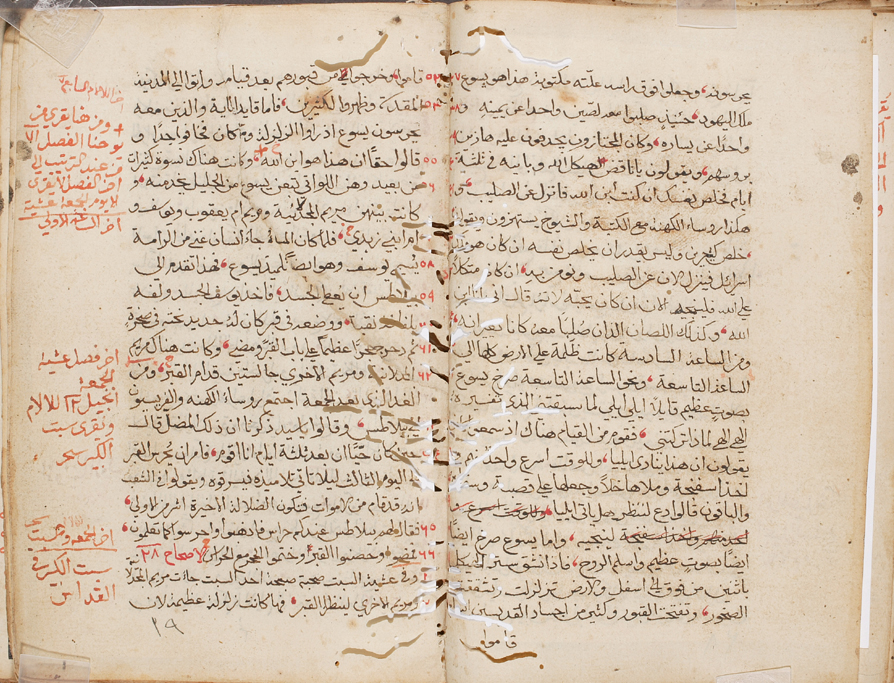 يحرسونه وجعلوا فوق راسه علّته مكتوبة هذا هو يسوع
ملك اليهود حينيذ صلبوا معه لصّين واحدا عن يمينه و
واحدًا عن يساره وكان المجتازون يجدفون عليه هازين
بروسهم ويقولون يا ناقض هيكل الله وبانيه في ثلثة
ايام خلص نفسك ان كنت ابن الله فانزل عن الصليب و
هكذا روساء الكهنة مع الكتبة والشيوخ يستهزون ويقولون
خلص اخرين وليس يقدر ان يخلص نفسه ان كان هو
اسرايل فينزل الان عن الصليب ونومن به ان كان متكلًا
على الله الان ان كان يحبّه لانه قال اني انا ابن
الله وكذلك اللصان اللذان صلبا معه كانا يعيرانه
ومن الساعة السادسة كانت ظلمة على الارض كلها الى
الساعة التاسعة ونحو الساعة التاسعة صرخ يسوع
بصوت عظيم قايلًا ايلي ايلي لما سبقتني الذي تفسيره
الهي الهي لماذا تركتني فقوم من القيام هناك اذ سمعوا
يقولون ان هذا ينادي ايليا وللوقت اسرع واحد منهم
اخذ اسفنجة وملاها خلًا وجعلها على قصبة
والباقون قالوا دع لننظر هل ياتي ايليا وللوقت اسرع
لينجيه واما يسوع صرخ ايضًا
ايضًا بصوت عظيم واسلم الروح فاذا انشق ستر الهيكل
باثنين من فوق الى اسفل والارض تزلزلت وتشققت
الصخور وتفتحت القبور وكثير من اجساد القديسين
قاموا
٥٣ قاموا وخرجوا من قبورهم بعد قيامه واتوا الى المدينة
المقدسة وظهروا لكثيرين فاما قايد الماية والذين معه
يحرسون يسوع اذ راوا الزلزلة وما كان خافوا جدًا و
٥٥ قالوا حقًا ان هذا هو ابن الله وكانت هناك نسوة كثيرات
من بعيد وهن اللواتي تبعن يسوع من الجليل يخدمنه و
كانت بينهن مريم المجدلية ومريم ام يعقوب ويوسف و
ام ابني زبدي فلما كان المساء جاء انسان غني من الرامة
٥٨ يسمى يوسف وهو ايضًا تلميذ يسوع فهذا تقدم الى
٥٩ بيلاطس ان يعطى الجسد فاخذ يوسف الجسد ولفه
بلفافة نقية ووضعه في قبر كان له جديد نحته في صخرة
٦١ ثم دحرج حجرًا عظيمًا على باب القبر ومضى وكانت هناك مريم
٦٢ المجدلانية ومريم الاخرى جالستين قدام القبر ومن
الغد الذي بعد الجمعة اجتمع روساء الكهنة والفريسيون
الى بيلاطس وقالوا يا سيد ذكرنا ان ذلك المضل قال
اذ كان حيًا ان بعد ثلثة ايام انا اقوم فامر ان يحرس القبر
الى اليوم الثالث ليلا تاتي تلاميذه فيسرقوه ويقولوا في الشعب
انه قد قام من الاموات فتكون الضلالة الاخيرة اشر من الاولى
٦٥ فقال لهم بيلاطس عندكم حراس فاذهبوا واحرسوا كما تعلمون
٦٦ فمضوا وحصنوا القبر وختموا الحجر مع الحراس الاصحاح ٢٨
وفي عشية السبت صبيحة احد السبت جات مريم المجدلانية
ومريم الاخرى لينظرا القبر فها كانت زلزلة عظيمة لان
ومن هنا يقرى من
يوحنا الفصل
اخر الفصل يقرى
يوم الجمعة عشية
اخر الساعة الاولى
اخر فصل عشية
الجمعة
انجيل ١٢ للالام
ويقرى سبت
الكبير سحر
سبت الكبير في
القداس
٢٩